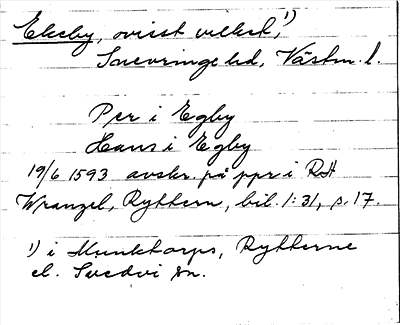 Ekeby, ovisst vilket,¹⁾
Snevringe hd, Västm. l.
Per i Egby
Hans i Egby
19/6 1593 avskr. på ppr i RH
Wrangel, Ryttern, bil. 1:31, s. 17.
¹⁾ i Munktorps, Rytterne
el. Svedvi sn.